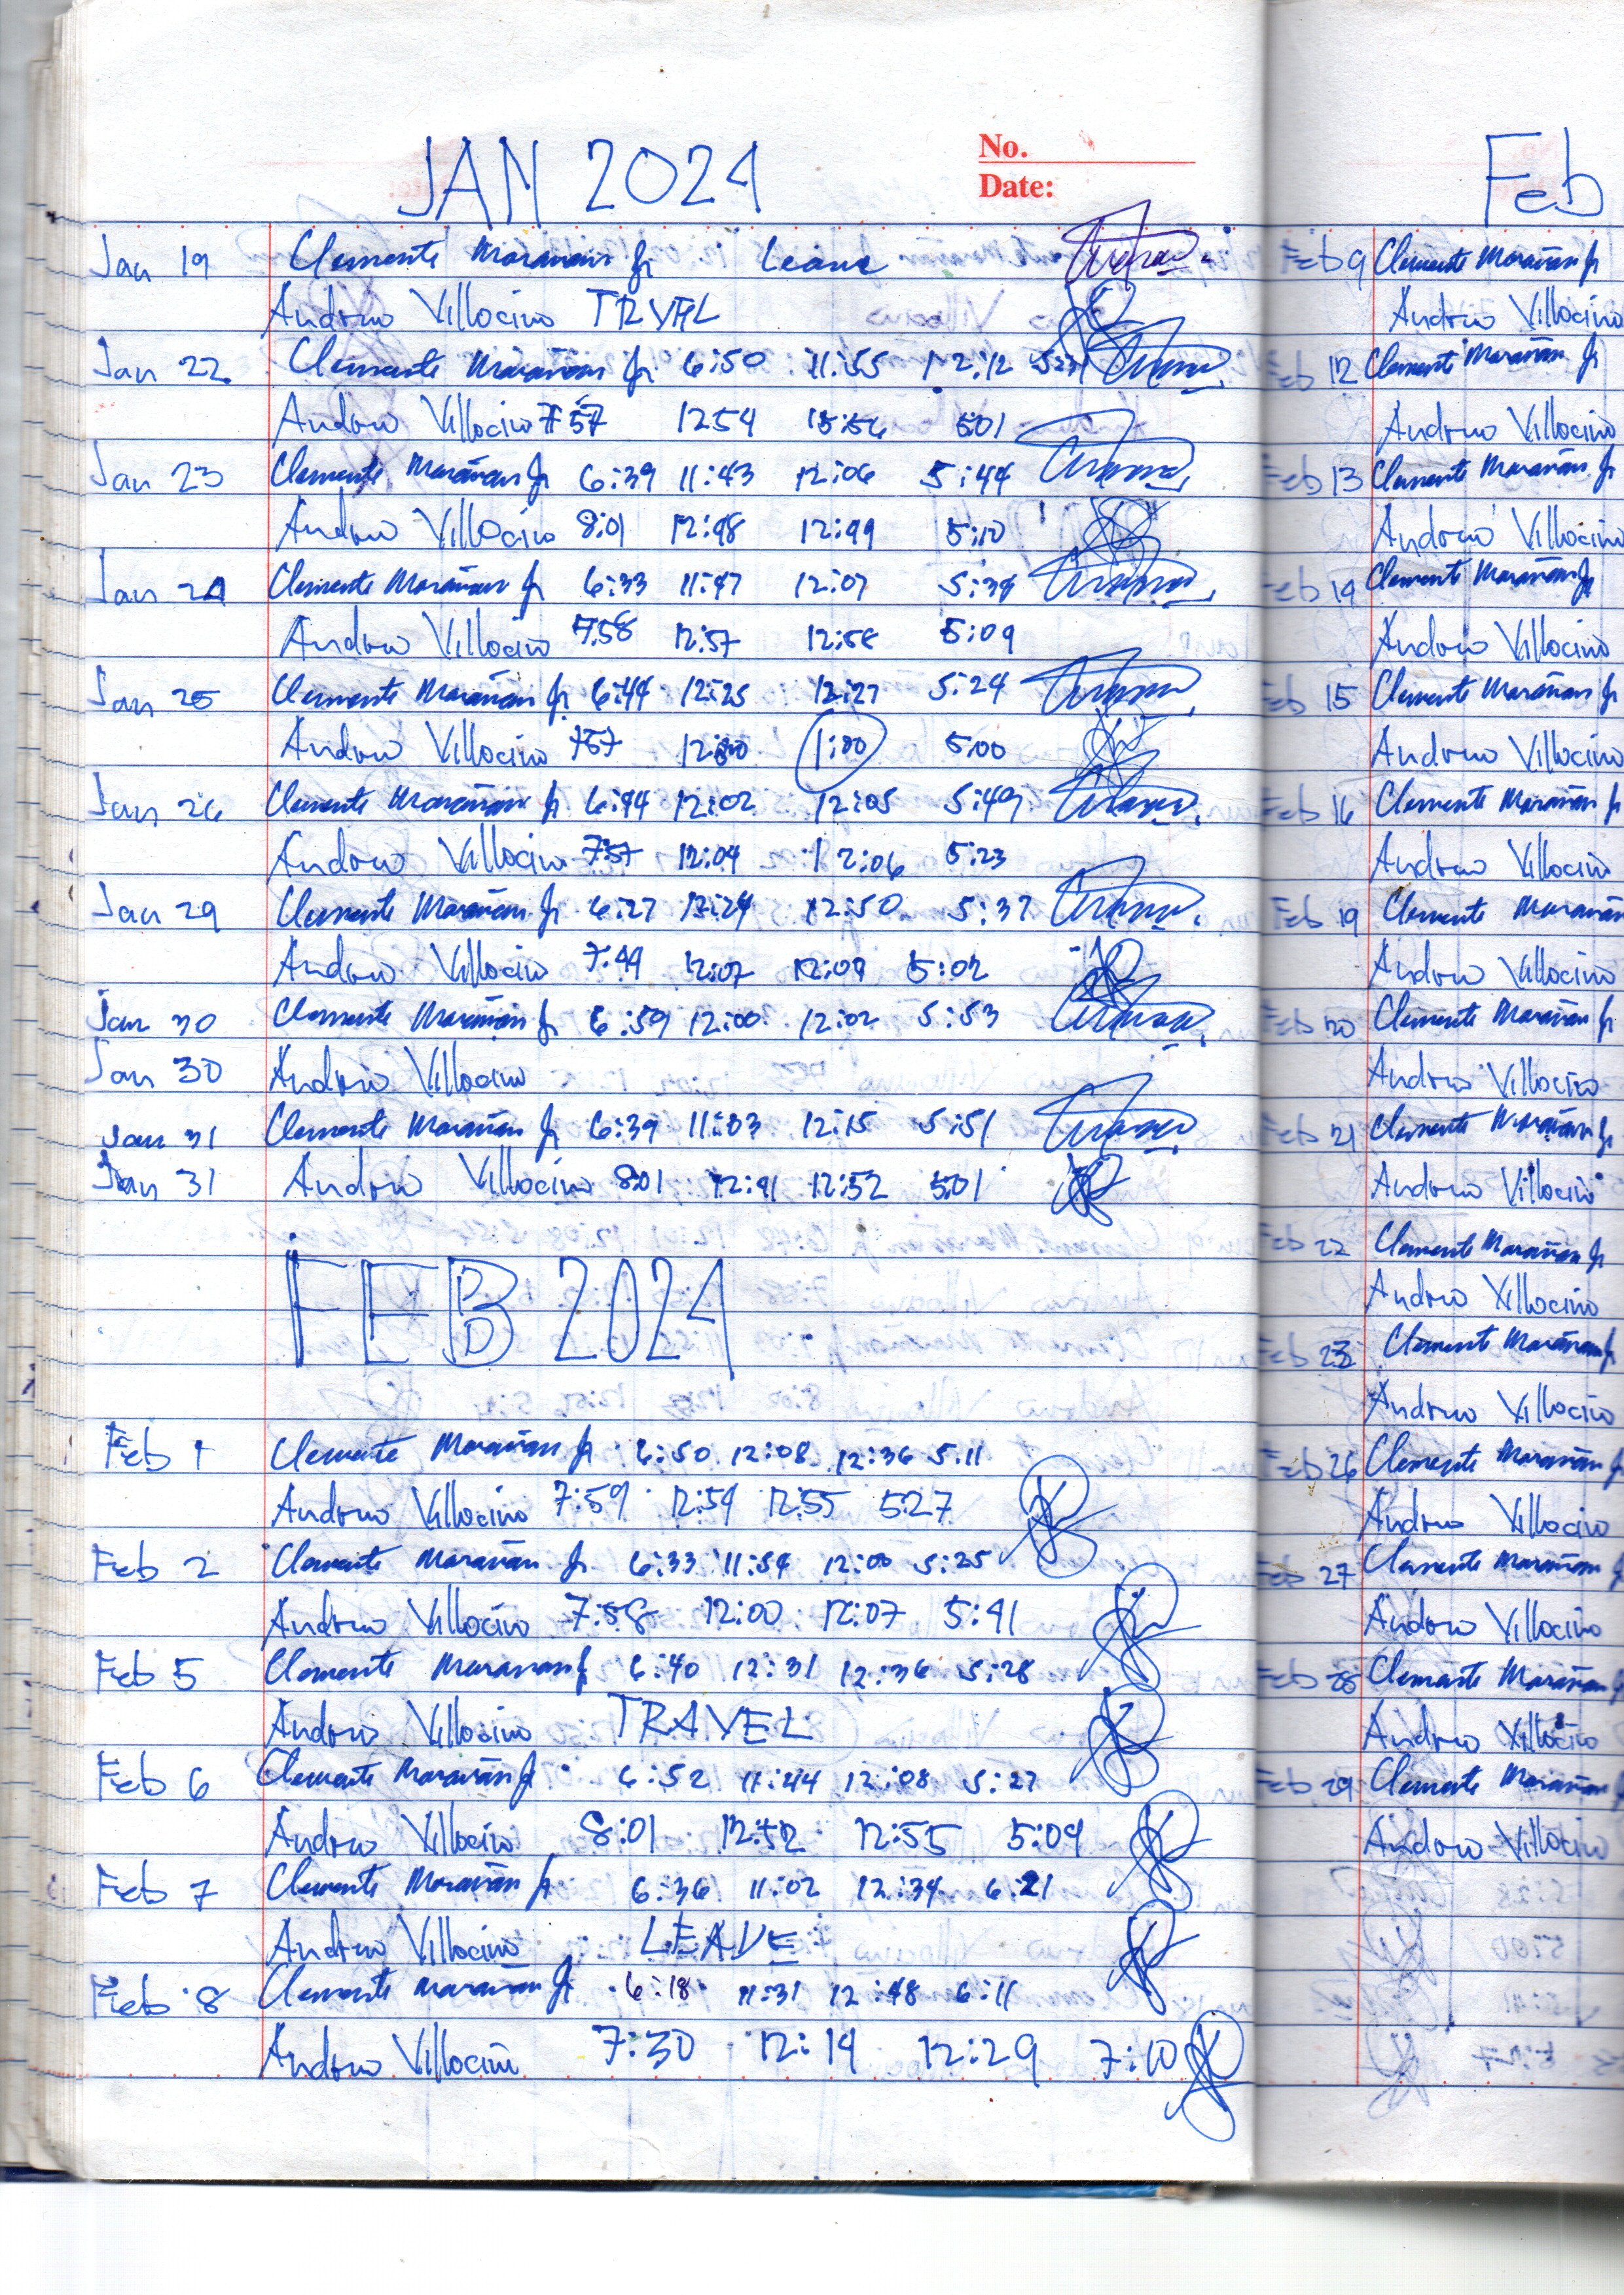 JAN 2024
No.
Date:
Jan 19 Clemente Marañan Jr Leave
Andrew Villocino TRVEL
Jan 22 Clemente Marañan Jr 6:50 11:55 12:12
Andrew Villocino 7:57 1254 5:01
Jan 23 Clemente Marañan Jr 6:39 11:43 12:06 5:44
Andrew Villocino 8:01 12:48 12:49 5:10
Jan 24 Clemente Marañan Jr 6:33 11:47 12:07 5:34
Andrew Villocino 7:58 12:57 12:58 5:09
Jan 25 Clemente Marañan Jr 6:44 12:25 12:27 5:24
Andrew Villocino 757 1:00 5:00
Jan 26 Clemente Marañan Jr 6:44 12:02 12:05 5:49
Andrew Villocino 7:57 12:04 12:06 5:23
Jan 29 Clemente Marañan Jr 6:27 12:24 12:50 5:37
Andrew Villocino 7:49 12:07 12:09 5:02
Jan 30 Clemente Marañan Jr 6:59 12:00 12:02 5:53
Jan 30 Andrew Villocino
Jan 31 Clemente Marañan Jr 6:39 11:03 12:15 5:51
Jan 31 Andrew Villocino 8:01 12:41 12:52 5:01
FEB 2024
Feb 1 Clemente Marañan Jr 6:50 12:08 12:36 5:11
Andrew Villocino 7:59 12:54 12:55 5:27
Feb 2 Clemente Marañan Jr 6:33 11:54 12:00 5:25
Andrew Villocino 7:58 12:00 12:07 5:41
Feb 5 Clemente Marañan Jr 6:40 12:31 12:36 5:28
Andrew Villocino TRAVEL
Feb 6 Clemente Marañan Jr 6:52 11:44 12:08 5:27
Andrew Villocino 8:01 12:52 12:55 5:09
Feb 7 Clemente Marañan Jr 6:36 11:02 12:34 6:21
Andrew Villocino LEAVE
Feb 8 Clemente Marañan Jr 6:18 11:31 12:48 6:11
Andrew Villocino 7:30 12:14 12:29 7:10
Feb
Feb 9 Clemente Marañan Jr
Andrew Villocino
Feb 12 Clemente Marañan Jr
Andrew Villocino
Feb 13 Clemente Marañan Jr
Andrew Villocino
Feb 14 Clemente Marañan Jr
Andrew Villocino
Feb 15 Clemente Marañan Jr
Andrew Villocino
Feb 16 Clemente Marañan Jr
Andrew Villocino
Feb 19 Clemente Marañan
Andrew Villocino
Feb 20 Clemente Marañan Jr
Andrew Villocino
Feb 21 Clemente Marañan Jr
Andrew Villocino
Feb 22 Clemente Marañan Jr
Andrew Villocino
Feb 23 Clemente Marañan Jr
Andrew Villocino
Feb 26 Clemente Marañan Jr
Andrew Villocino
Feb 27 Clemente Marañan
Andrew Villocino
Feb 28 Clemente Marañan
Andrew Villocino
Feb 29 Clemente Marañan
Andrew Villocino